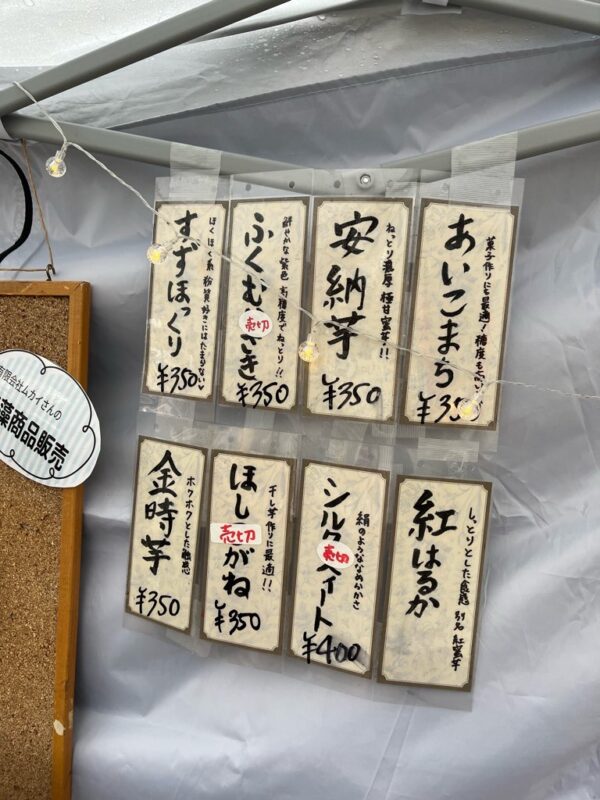 あいこまち
菓子作りにも最適！糖度も
¥350
安納芋
ねっとり濃厚 極甘蜜芋!!
¥350
ふくむ
売切
さき
鮮やかな紫色 高糖度でねっとり!!
¥350
すずほっくり
ほくほく系 粉質好きにはたまらない♡
¥350
紅はるか
しっとりとした食感 別名 紅蜜芋
シルク
売切
イート
絹のようななめかかさ
¥400
ほし
売切
がね
干し芋作りに最適!!
¥350
金時芋
ホクホクとした触感
¥350
有限会社ムカイさんの
藻商品販売